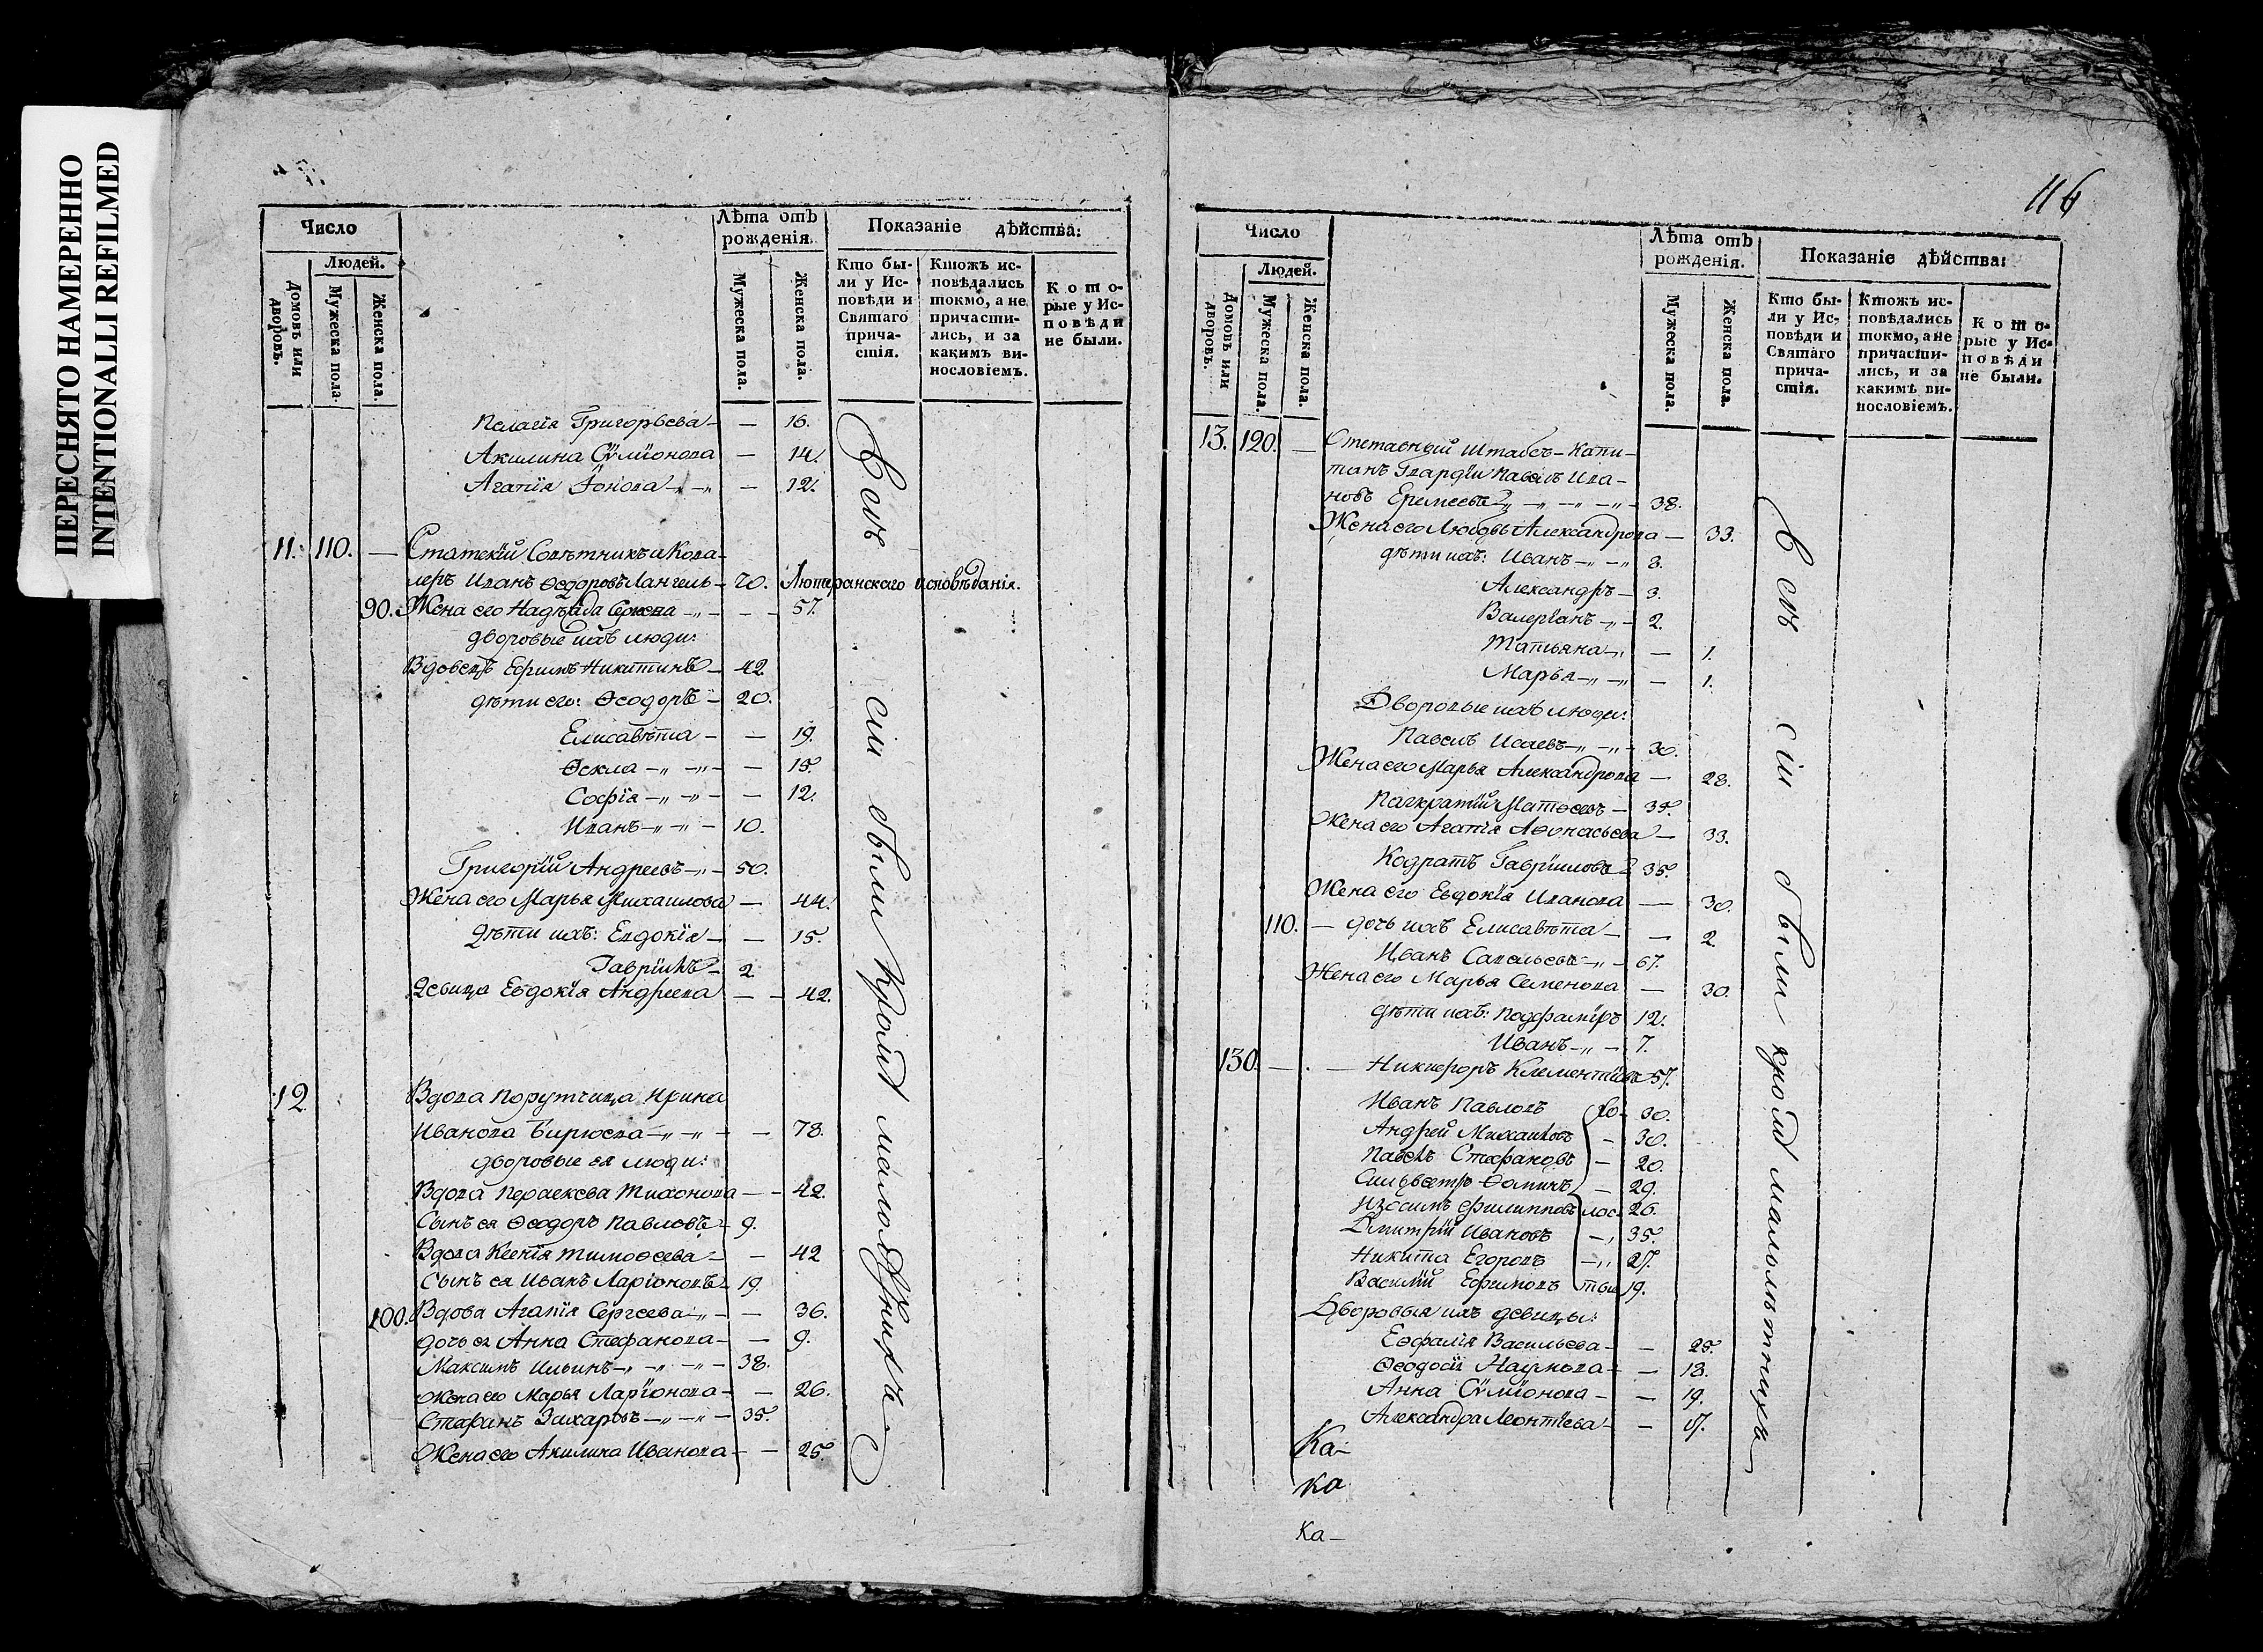 ПЕРЕСНЯТО НАМЕРЕННО
INTENTIONALLI REFILMED
Число
Лѣта отъ рожденія.
Показаніе дѣйства:
Людей.
Домовъ или дворовъ.
Мужеска пола.
Женска пола.
Мужеска пола.
Женска пола.
Кто были у Исповѣди и Святаго причастія.
Ктожъ исповѣдались токмо, а не причастились, и за какимъ винословіемъ.
Которые у Исповѣди не были.
Пелагія Григорьева — — 16.
Акилина Сѵміонова — 14.
Агапія Іонова — — 12.
11. 110. — Статскій Совѣтникъ и Кава-
леръ Иванъ Ѳедоровъ Лангель — 70. Лютеранскаго исповѣданія.
90. Жена его Надѣжда — — 57.
дворовые ихъ люди:
Вдовецъ Ефимъ Никитинъ — 42.
дѣти его: Ѳеодоръ — 20.
Елисавѣта — — 19.
Ѳекла — — — 15.
Софія — — — 12.
Иванъ — — 10.
Григорій Андреевъ — 50.
Жена его Марья Михаилова — 44.
дѣти ихъ: Евдокія — — 15.
Гавріилъ — 2.
Девица Евдокія Андреева — — 42.
12. Вдова Порутчица Ирина
Иванова Бирюева — — — 78.
дворовые ея люди:
Вдова Параскева Тихонова — — 42.
Сынъ ея Ѳеодоръ Павловъ — 9.
Вдова Ксенія Тимоѳеева — — 42
Сынъ ея Иванъ Ларіоновъ — 19.
100. Вдова Агапія Сергеева — — 36.
дочь ея Анна Стефанова — — 9.
Максимъ Ильинъ — — — 38.
Жена его Марья Ларіонова — — 26.
Стефанъ Захаровъ — — — 35.
Жена его Акилина Иванова — — 25.
Всѣ сіи были кромѣ малолѣтнихъ
116
Число
Лѣта отъ рожденія.
Показаніе дѣйства:
Людей.
Домовъ или дворовъ.
Мужеска пола.
Женска пола.
Мужеска пола.
Женска пола.
Кто были у Исповѣди и Святаго причастія.
Ктожъ исповѣдались токмо, а не причастились, и за какимъ винословіемъ.
Которые у Исповѣди не были.
13. 120. — Отставный Штабсъ-Капи-
танъ Гвардіи Павелъ Ива-
новъ Еремеевъ — — — 38.
Жена его Любовь Александрова — 33.
дѣти ихъ: Иванъ — — 8.
Александръ — 3.
Валеріанъ — 2.
Татьяна — — 1.
Марья — — — 1.
Дворовые ихъ люди:
Павелъ Исаевъ — — 30.
Жена его Марья Александрова — 28.
Панкратій Матѳеевъ — 35.
Жена его Агапія Аѳонасьева — 33.
Кодратъ Гавріиловъ — 35.
Жена его Евдокія Иванова — 30.
110. — дочь ихъ Елисавѣта — — 2.
Иванъ Савельевъ — — 67.
Жена его Марья Семенова — 30.
дѣти ихъ: 12.
Иванъ — — 7.
130. — . — Никифоръ Клементіевъ 57.
Иванъ Павловъ хо- 30.
Андрей Михаиловъ — 30.
Павелъ Стефановъ — 20.
Силивестръ Ѳоминъ — 29.
Изосимъ Филипповъ лос- 26.
Дмитрій Ивановъ — 35.
Никита Егоровъ — 27.
Василій Ефимовъ тые 19.
Дворовыя ихъ девицы:
Васильева — — 25.
Ѳеодосія Наумова — — 18.
Анна Сѵміонова — — 19.
Александра Леонтіева — — 17.
Всѣ сіи были кромѣ малолѣтнихъ
Ка-
Ка
Ка-